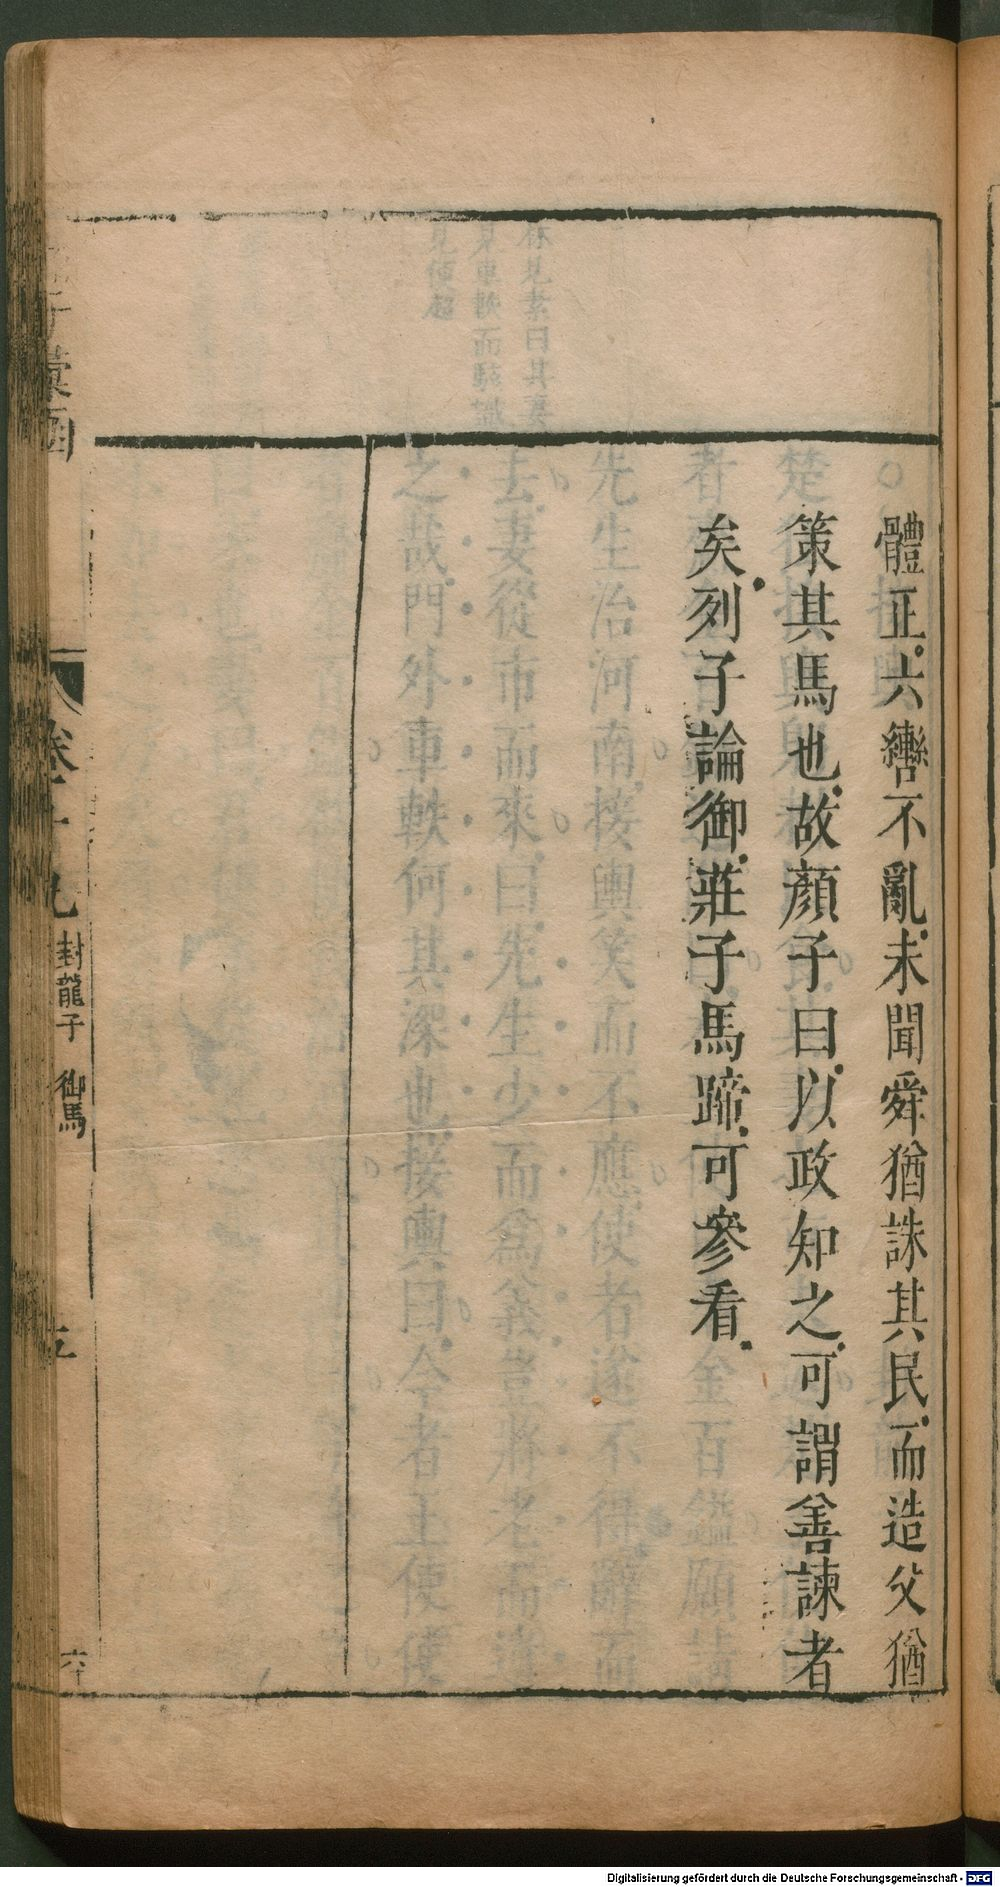 體正六轡不亂未聞舜猶誅其民而造父猶
策其馬也故顏子曰以政知之可謂善諫者
矣列子論御莊子馬蹄可參看
子彙函
卷十九
封龍子 御馬
六
Digitalisierung gefördert durch die Deutsche Forschungsgemeinschaft - DFG